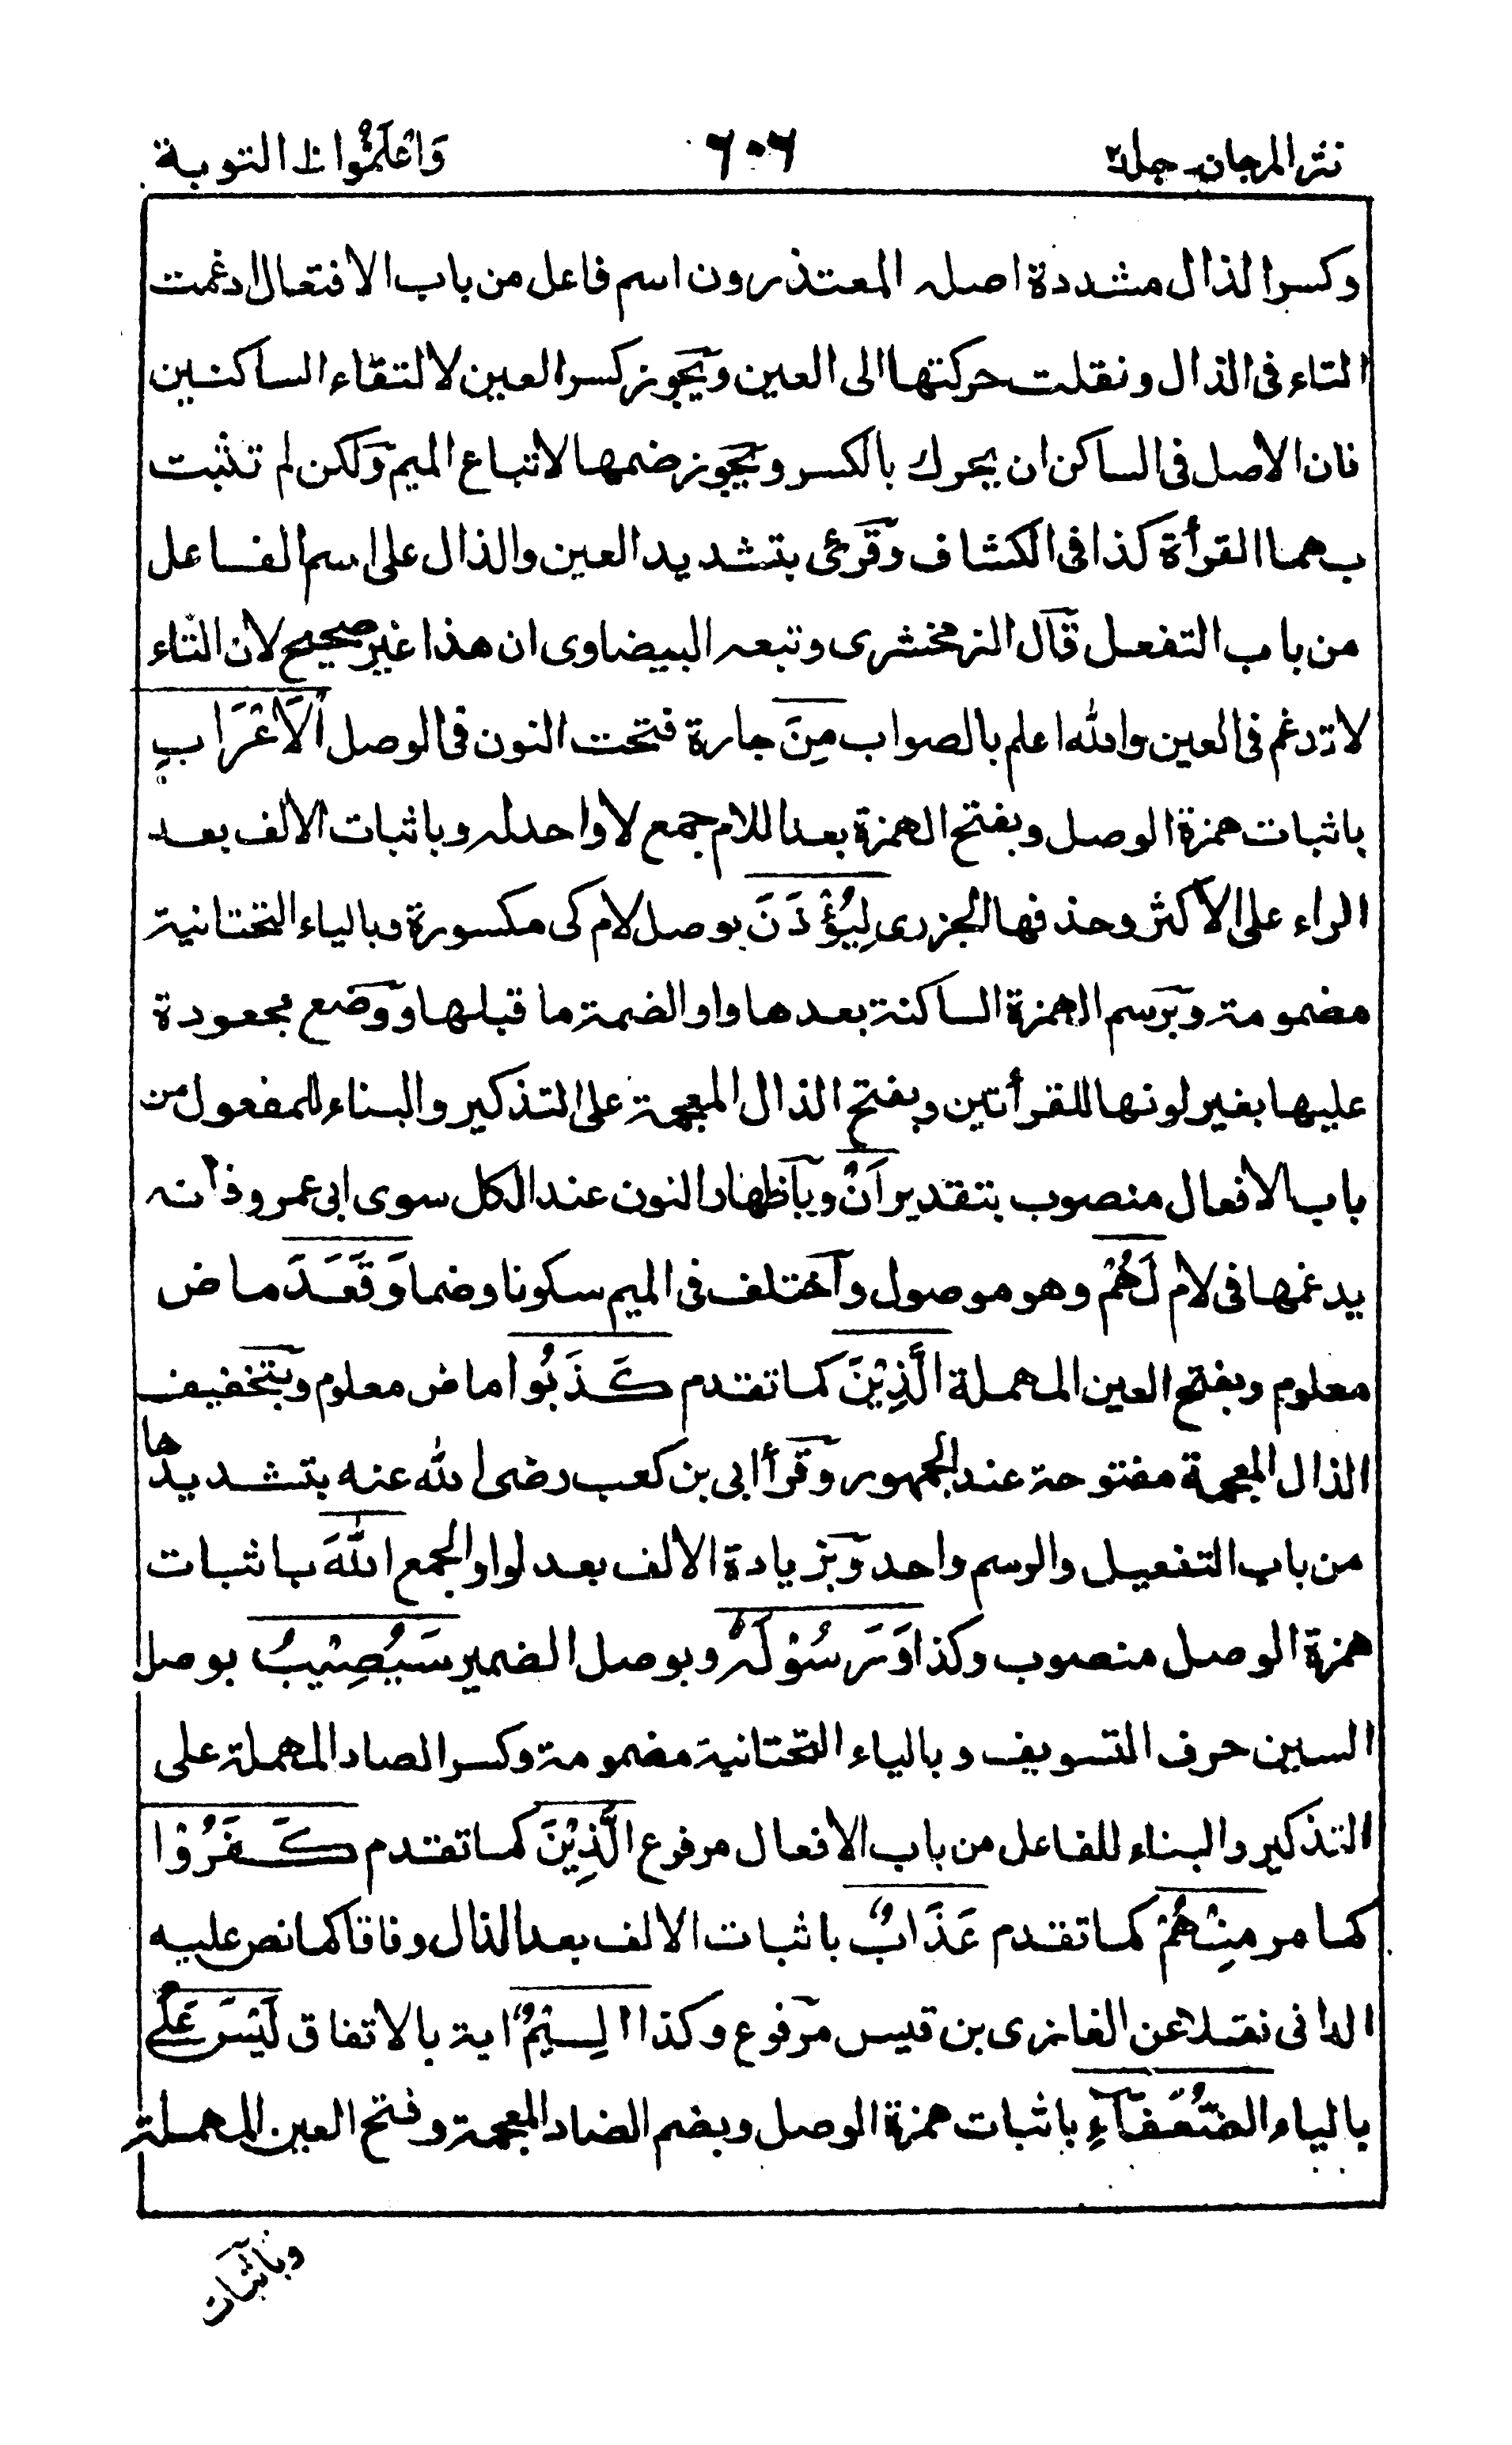 نثر المرجان جلد٢ ٦٠٦ وَاعْلَمُوٓا ١٠ التوبة
وكسر الذال مشددة اصله المعتذرون اسم فاعل من باب الافتعال ادغمت
التاء فى الذال ونقلت حركتها الى العين ويجوز كسر العين لالتقاء الساكنين
فان الاصل فى الساكن ان يحرك بالكسر ويجوز ضمها لاتباع الميم ولكن لم تثبت
بهما القرأة كذا فى الكشاف وقرئ بتشديد العين والذال على اسم الفاعل
من باب التفعل قال الزمخشرى وتبعه البيضاوى ان هذا غير صحيح لان التاء
لا تدغم فى العين والله اعلم بالصواب مِنَ جارة فتحت النون فى الوصل الْاَعْرَابِ
باثبات همزة الوصل وبفتح الهمزة بعد اللام جمع لا واحد له وباثبات الالف بعد
الراء على الاكثر وحذفها الجزرى لِيُؤْذَنَ بوصل لام كى مكسورة وبالياء التحتانية
مضمومة وبرسم الهمزة الساكنة بعدها واوا لضمة ما قبلها ووضع مجعودة
عليها بغير لونها للقرأتين وبفتح الذال المعجمة على التذكير والبناء للمفعول من
باب الافعال منصوب بتقدير اَنْ وباظهار النون عند الكل سوى ابى عمرو فانه
يدغمها فى لام لَهُمْ وهو موصول واختلف فى الميم سكونا وضما وَقَعَدَ ماض
معلوم وبفتح العين المهملة الَّذِيْنَ كما تقدم كَذَبُوا ماض معلوم وبتخفيف
الذال المعجمة مفتوحة عند الجمهور وقرأ ابى بن كعب رضى الله عنه بتشديدها
من باب التفعيل والرسم واحد وبزيادة الالف بعد لواو الجمع اللهَ باثبات
همزة الوصل منصوب وكذا وَرَسُوْلَهٗ وبوصل الضمير سَيُصِيْبُ بوصل
السين حرف التسويف وبالياء التحتانية مضمومة وكسر الصاد المهملة على
التذكير والبناء للفاعل من باب الافعال مرفوع الَّذِيْنَ كما تقدم كَفَرُوْا
كما مر مِنْهُمْ كما تقدم عَذَابٌ باثبات الالف بعد الذال وفاقا كما نص عليه
الدانى نقلا عن الغازى بن قيس مرفوع وكذا اَلِيْمٌ اية بالاتفاق لَيْسَ عَلَى
بالياء الضُّعَفَآءِ باثبات همزة الوصل وبضم الضاد المعجمة وفتح العين المهملة
وباثبات